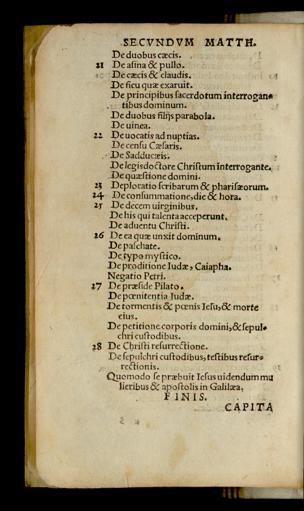 SECVNDVM MATTH.
De duobus cæcis.
21 De asina & pullo.
De cæcis & claudis.
De ficu quæ exaruit.
De principibus sacerdotum interrogan=
tibus dominum.
De duobus filijs parabola.
De uinea.
22 De uocatis ad nuptias.
De censu Cæsaris.
De Sadducæis.
De legisdoctore Christum interrogante.
De quæstione domini.
23 Deploratio scribarum & pharisæorum.
24 De consummatione, die & hora.
25 De decem uirginibus.
De his qui talenta acceperunt.
De aduentu Christi.
26 De ea quæ unxit dominum.
De paschate.
De typo mystico.
De proditione Iudæ, Caiapha.
Negatio Petri.
27 De præside Pilato.
De pœnitentia Iudæ.
De tormentis & pœnis Iesu, & morte
eius.
De petitione corporis domini, & sepul=
chri custodibus.
28 De Christi resurrectione.
De sepulchri custodibus, testibus resur=
rectionis.
Quomodo se præbuit Iesus uidendum mu
lieribus & apostolis in Galilæa.
FINIS.
CAPITA